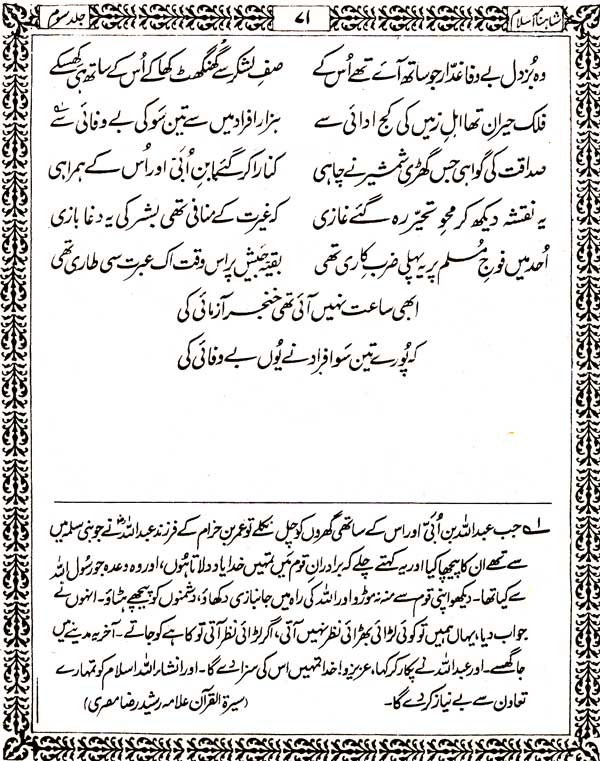 شاہنامۂ اسلام ۷۱ جلد سوم
وہ بُزدل بے وفا غدّار جو ساتھ آئے تھے اُس کے صفِ لشکر سے گھنگھٹ کھا کے اُس کے ساتھ ہی کھسکے
فلک حیراں تھا اہلِ زمیں کی کج ادائی سے ہزار افراد میں سے تین سَو کی بے وفائی سے
صداقت کی گواہی جس گھڑی شمشیر نے چاہی کنارا کر گئے ابنِ اُبَیّ اور اُس کے ہمراہی
یہ نقشہ دیکھ کر محوِ تحیّر رہ گئے غازی کہ غیرت کے منافی تھی بشر کی یہ دغا بازی
اُحد میں فوجِ مُسلم پر یہ پہلی ضربِ کاری تھی بقیّہ جَیش پر اس وقت اک عبرت سی طاری تھی
ابھی ساعت نہیں آئی تھی خنجر آزمائی کی
کہ پُورے تین سَو افراد نے یُوں بے وفائی کی
۱؎ جب عبداللہ بن اُبَیّ اور اس کے ساتھی گھروں کو چل نکلے تو عمر بن خرام کے فرزند عبداللہؓ نے جو بنی سلمہ میں
سے تھے ان کا پیچھا کیا اور یہ کہتے چلے کہ برادرانِ قوم میں تمہیں خدا یاد دلاتا ہُوں، اور وہ وعدہ جو رسُول اللہ
سے کیا تھا۔ دیکھو اپنی قوم سے منہ نہ موڑو اور اللہ کی راہ میں جانبازی دکھاؤ، دشمنوں کو پیچھے ہٹاؤ۔ انہوں نے
جواب دیا، یہاں ہمیں تو کوئی لڑائی بھڑائی نظر نہیں آتی، اگر لڑائی نظر آتی تو کاہے کو جاتے۔ آخر یہ مدینے میں
جا گھسے۔ اور عبداللہ نے پکار کر کہا، عزیزو! خدا تمہیں اس کی سزا دے گا۔ اور انشاء اللہ اسلام کو تمہارے
تعاون سے بے نیاز کر دے گا۔ (سیرۃ القرآن علامہ رشید رضا مصری)